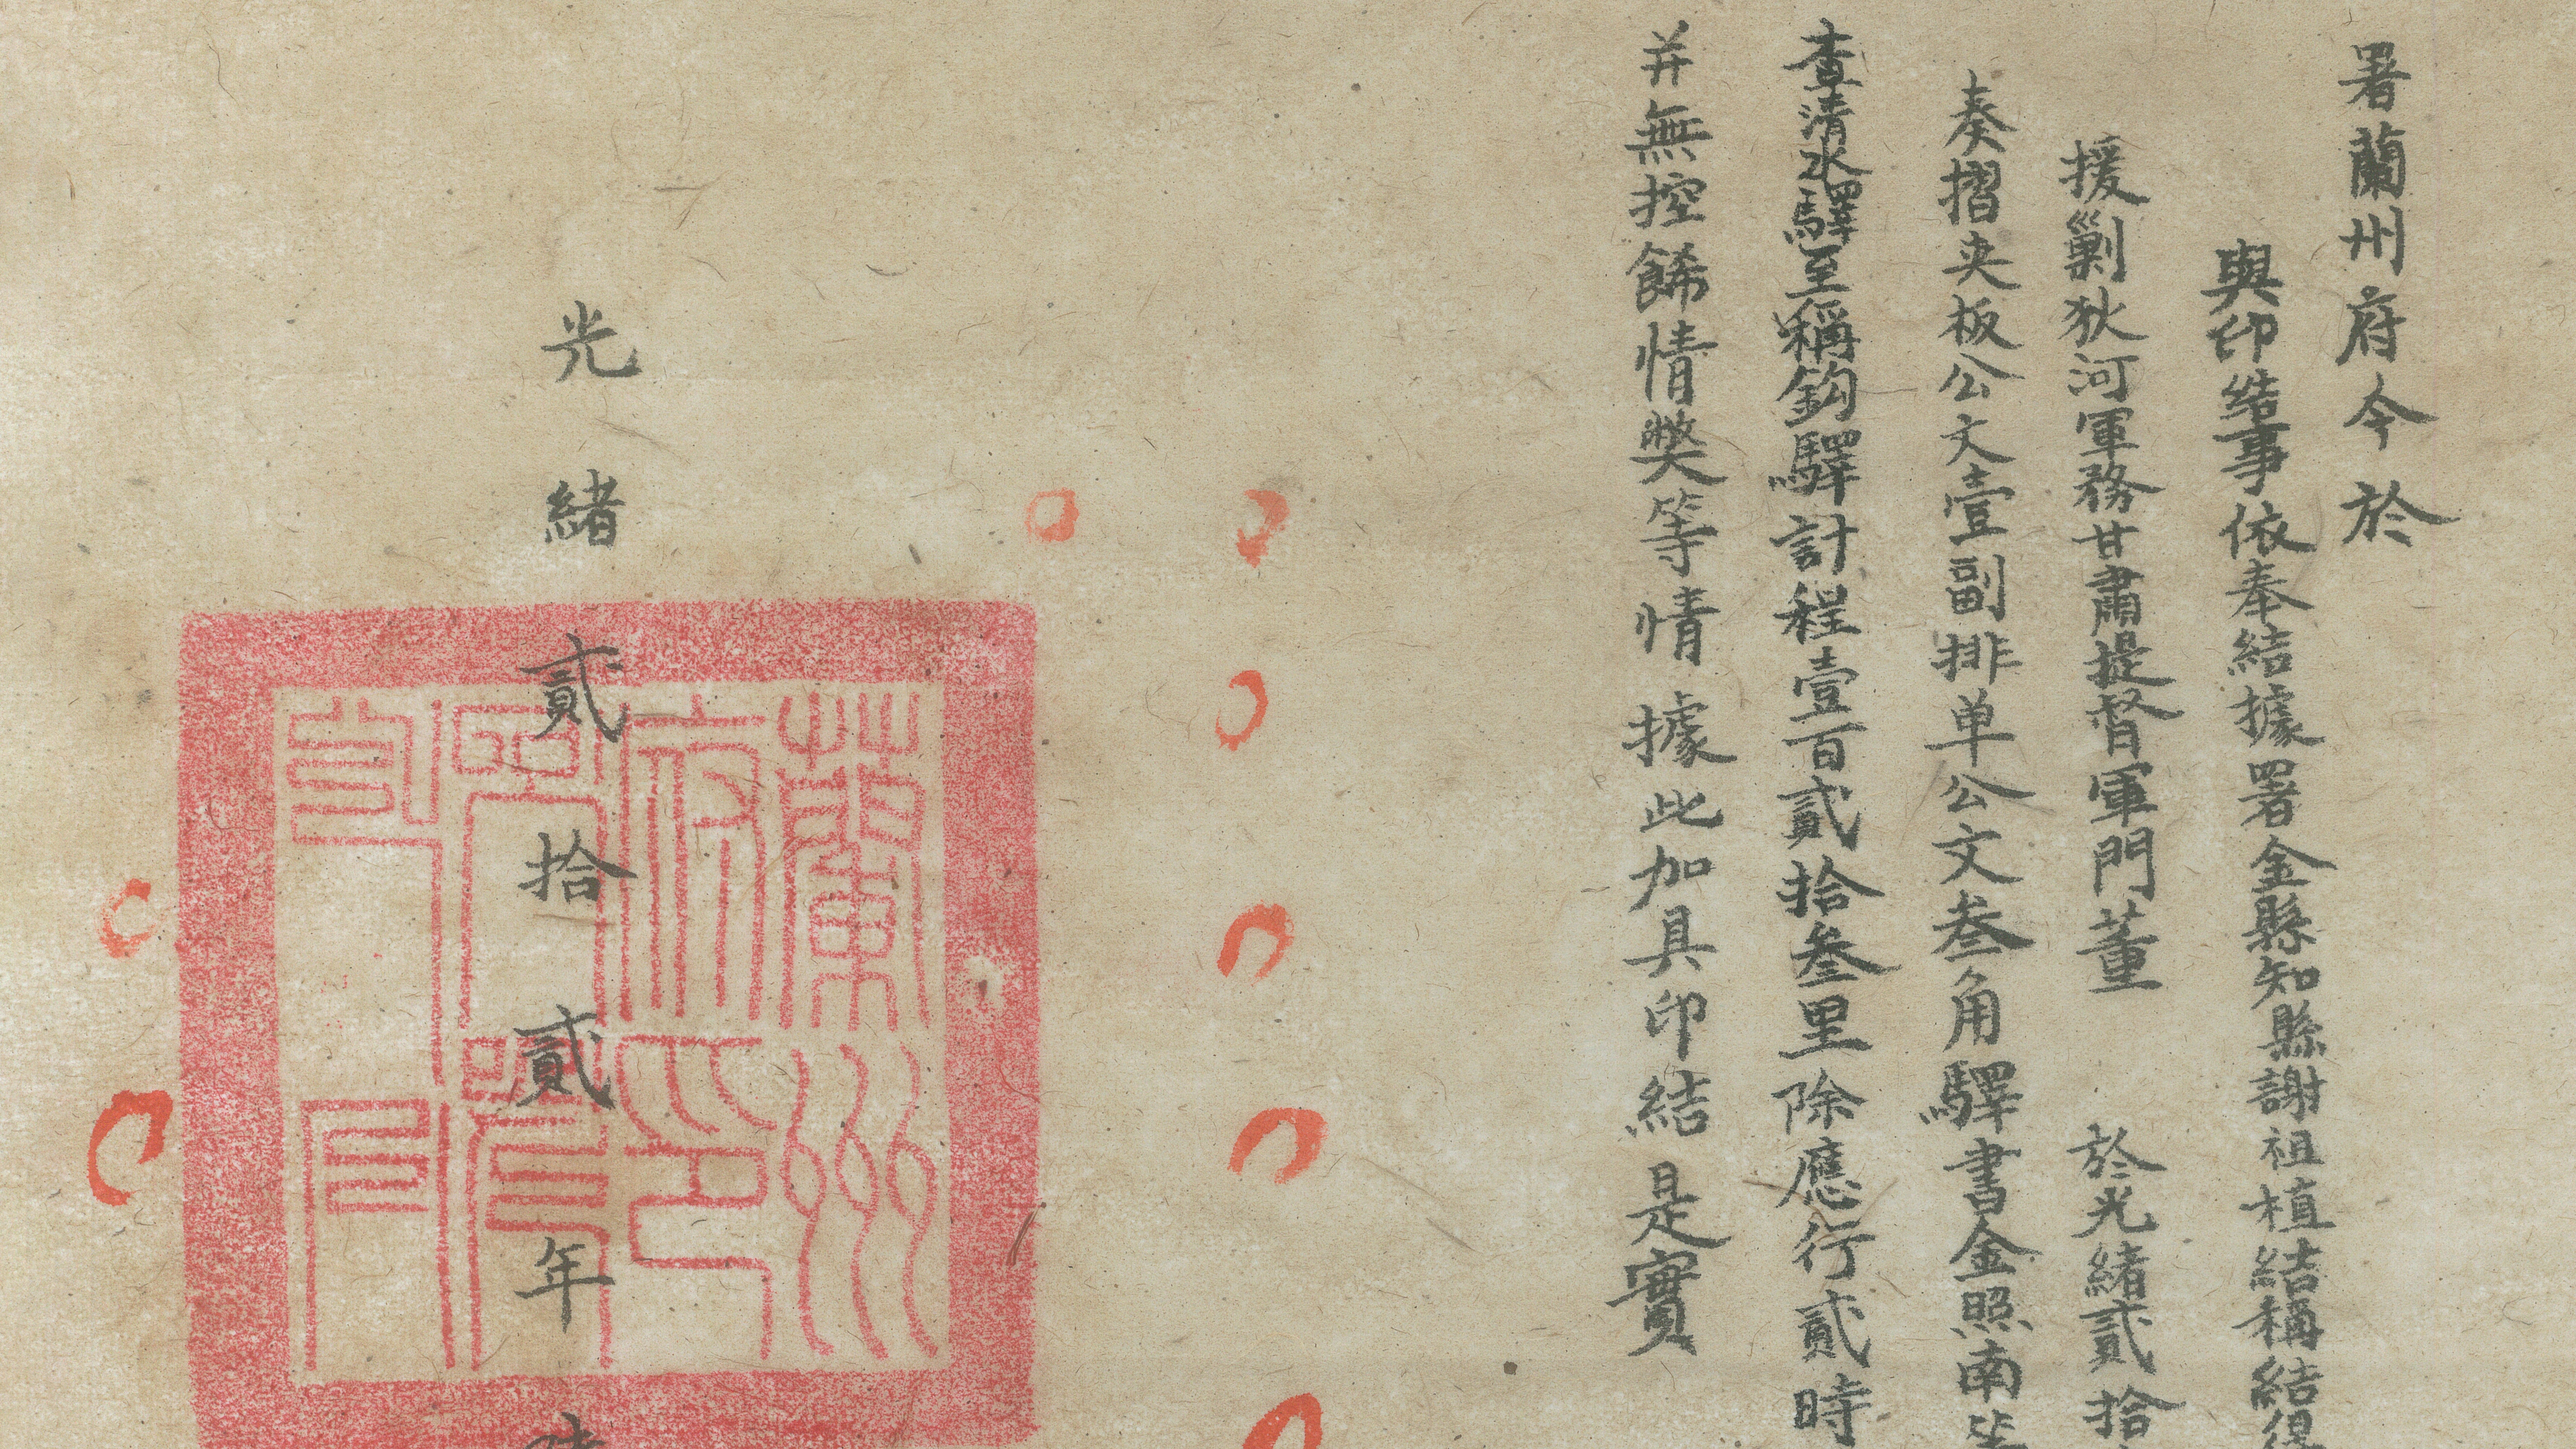 署蘭州府今於
與印結事依奉結據署金縣知縣謝祖植結稱結得
援剿狄河軍務甘肅提督軍門董　於光緒貳拾
奏摺夾板公文壹副排单公文叁角驛書金照南等
查清水驛至稱鈎驛計程壹百貳拾叁里除應行貳時
并無控餙情獘等情據此加具印結是實
光緒貳拾貳年
蘭州府印